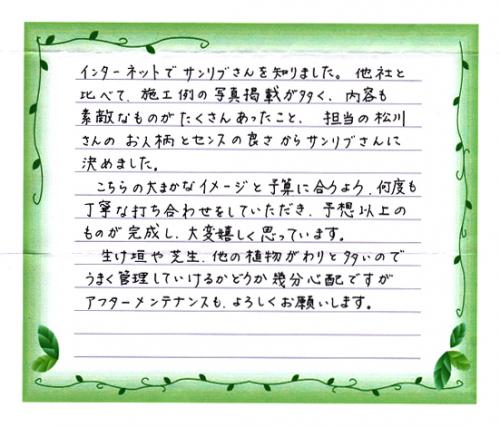 インターネットでサンリブさんを知りました。他社と
比べて、施工例の写真掲載が多く、内容も
素敵なものがたくさんあったこと、担当の松川
さんのお人柄とセンスの良さからサンリブさんに
決めました。
こちらの大まかなイメージと予算に合うよう、何度も
丁寧な打ち合わせをしていただき、予想以上の
ものが完成し、大変嬉しく思っています。
生け垣や芝生、他の植物がわりと多いので
うまく管理していけるかどうか幾分心配ですが
アフターメンテナンスも、よろしくお願いします。